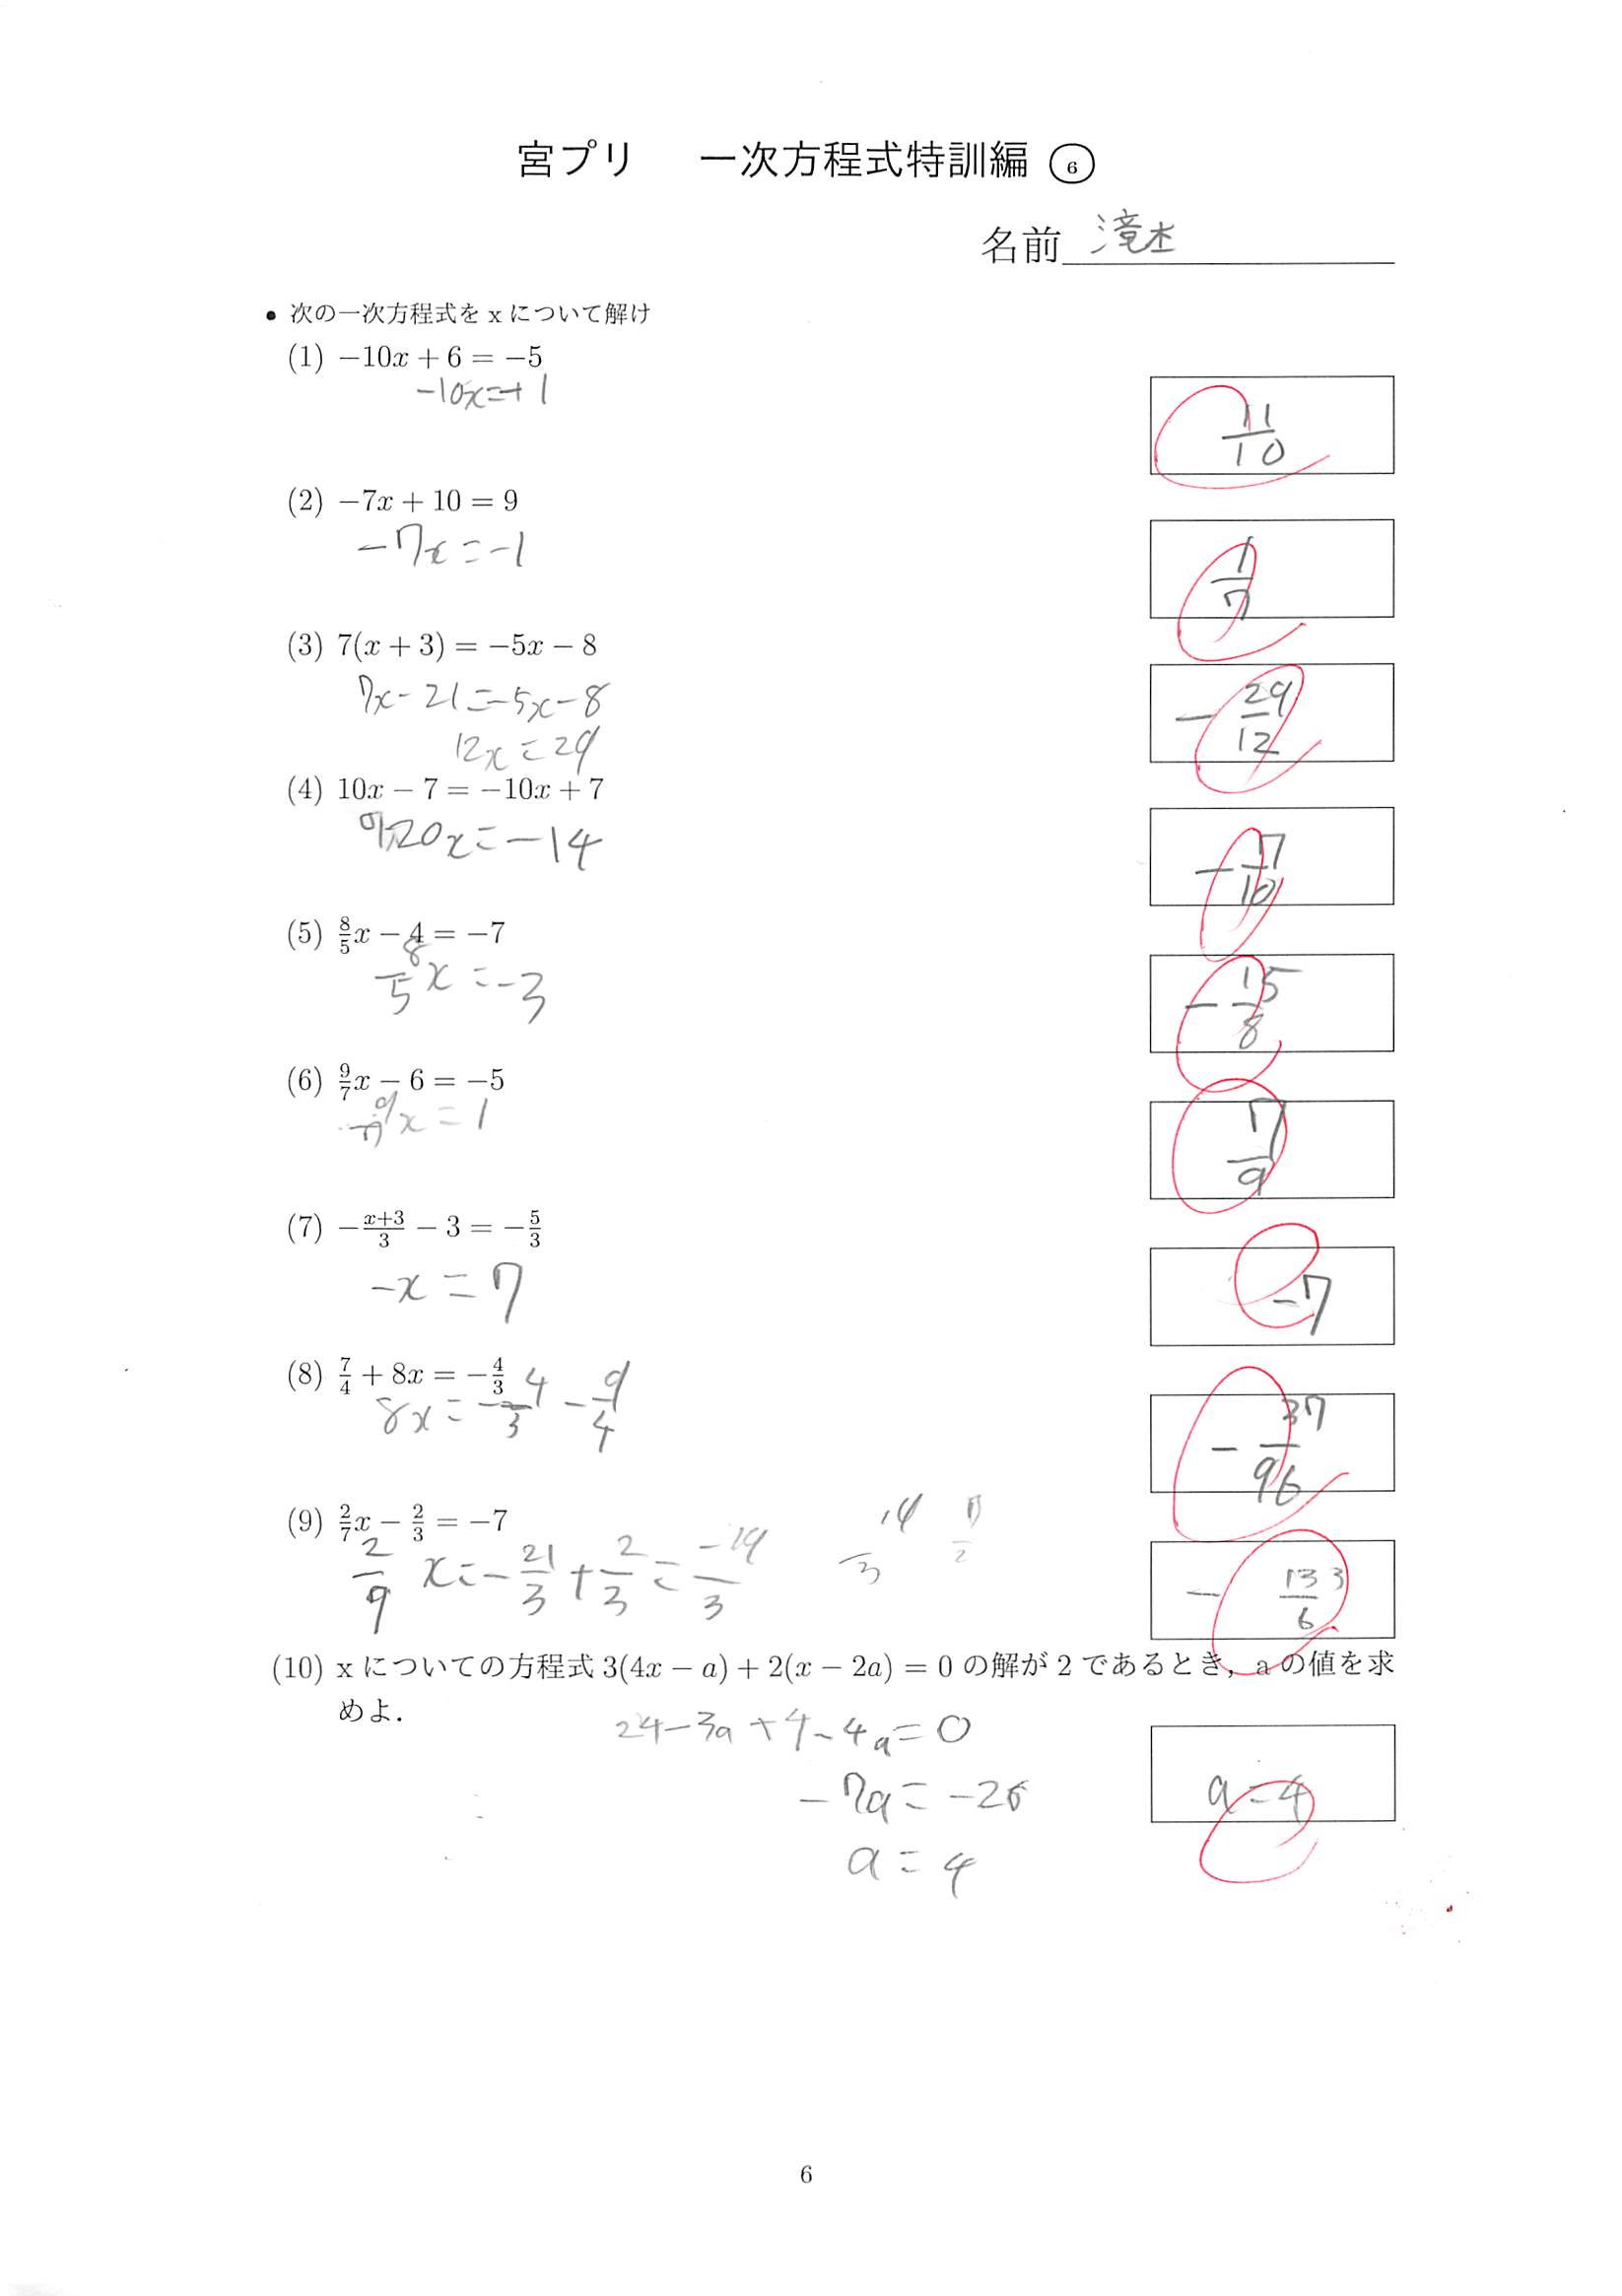 宮プリ 一次方程式特訓編 ⑥
名前 滝本
• 次の一次方程式を x について解け
(1) −10x + 6 = −5
−10x=+1
11/10
(2) −7x + 10 = 9
−7x=−1
1/7
(3) 7(x + 3) = −5x − 8
7x−21=−5x−8
12x=29
−29/12
(4) 10x − 7 = −10x + 7
20x=−14
−7/10
(5) 8/5x − 4 = −7
8/5x=−3
−15/8
(6) 9/7x − 6 = −5
9/7x=1
7/9
(7) −(x+3)/3 − 3 = −5/3
−x=7
−7
(8) 7/4 + 8x = −4/3
8x=−4/3−9/4
−37/96
(9) 2/7x − 2/3 = −7
2/9x=−21/3+2/3=−19/3
−133/6
(10) x についての方程式 3(4x − a) + 2(x − 2a) = 0 の解が 2 であるとき，a の値を求
めよ．
24−3a+4−4a=0
−7a=−28
a=4
a=4
6